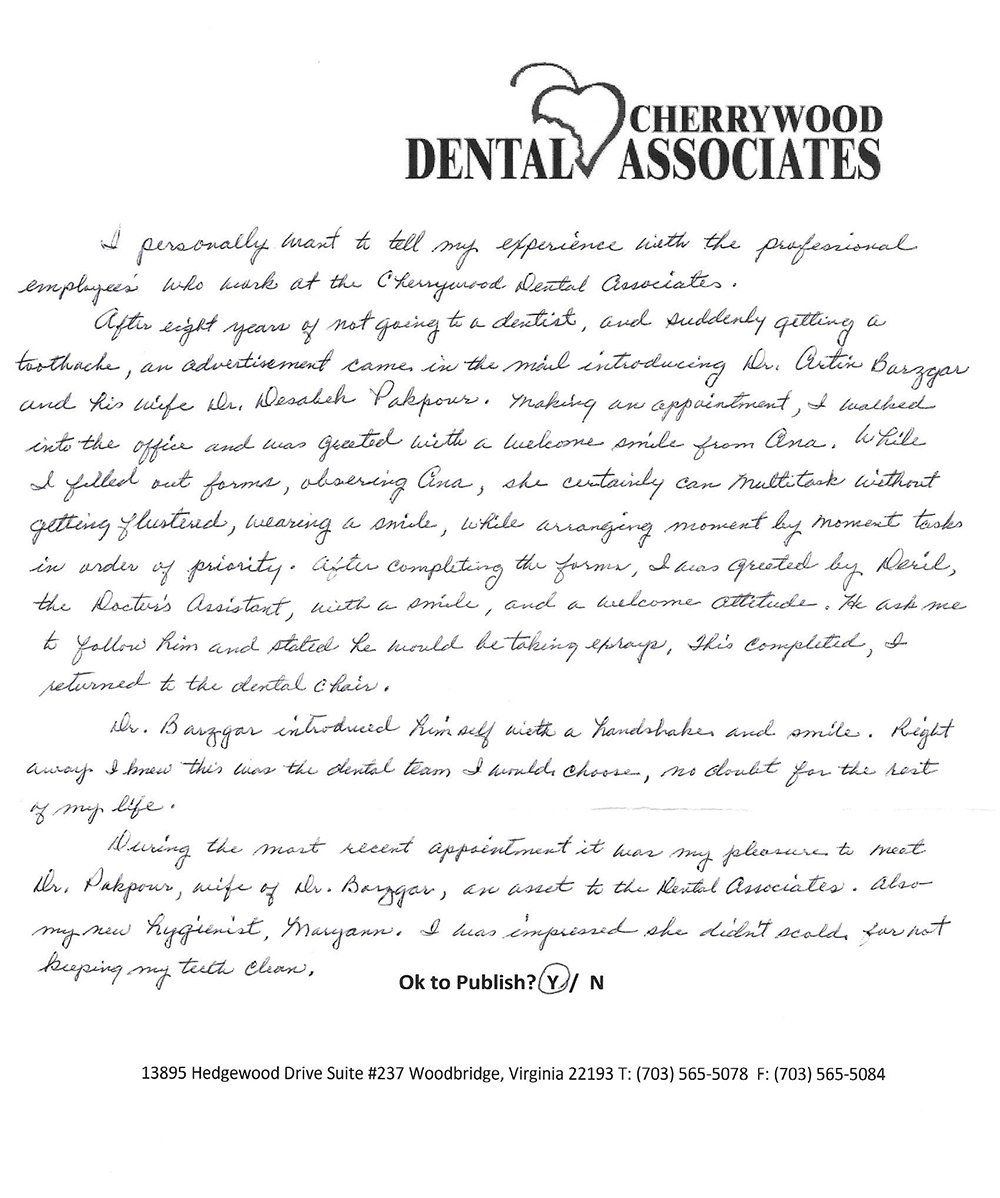 CHERRYWOOD
DENTAL ASSOCIATES
I personally want to tell my experience with the professional
employees who work at the Cherrywood Dental Associates.
After eight years of not going to a dentist, and suddenly getting a
toothache, an advertisement came in the mail introducing Dr. Artin Barzgar
and his wife Dr. Desabeh Pakpour. Making an appointment, I walked
into the office and was greeted with a welcome smile from Ana. While
I filled out forms, obsering Ana, she certainly can multitask without
getting flustered, wearing a smile, while arranging moment by moment tasks
in order of priority. After completing the forms, I was greeted by Deril,
the Doctor's Assistant, with a smile, and a welcome attitude. He ask me
to follow him and stated he would be taking exrays, This completed, I
returned to the dental chair.
Dr. Barzgar introduced himself with a handshake and smile. Right
away I knew this was the dental team I would choose, no doubt for the rest
of my life.
During the most recent appointment it was my pleasure to meet
Dr. Pakpour, wife of Dr. Barzgar, an asset to the Dental Associates. Also
my new hygienist, Maryann. I was impressed she didn't scold for not
keeping my teeth clean.
Ok to Publish? Y / N
13895 Hedgewood Drive Suite #237 Woodbridge, Virginia 22193 T: (703) 565-5078 F: (703) 565-5084